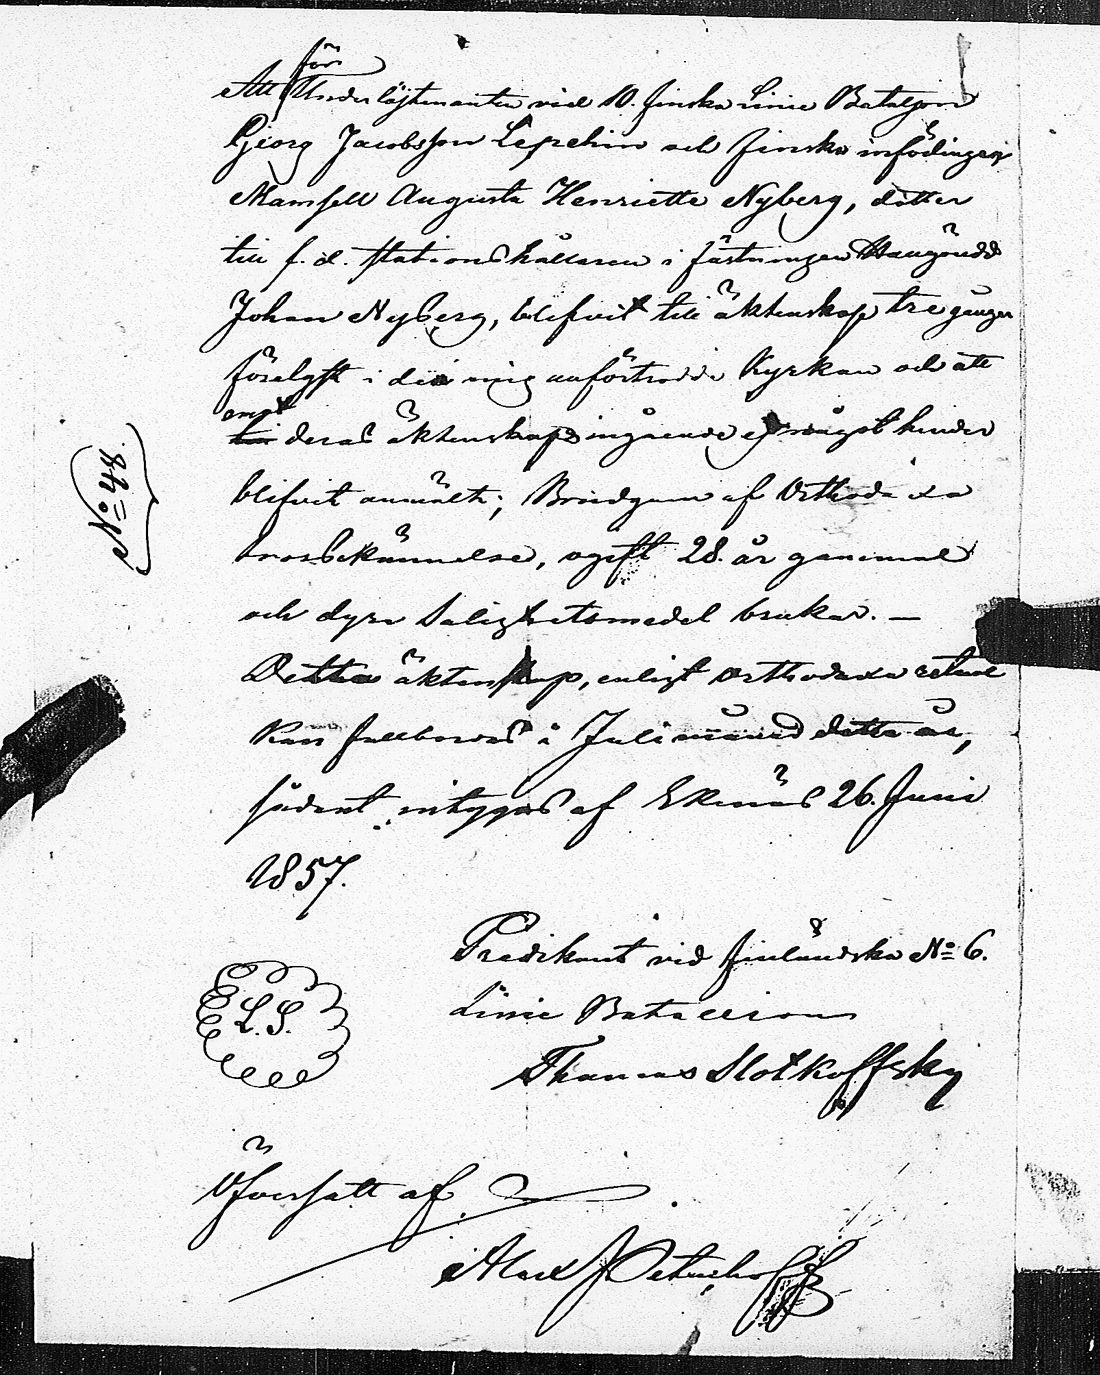 för
Att Underlöjtenanten vid 10. finska Linie Bataljon
Gjeorg Jacobsson Lepehin och finska infödingen
Mamsell Augusta Henriette Nyberg, dotter
till f. d. stationshållaren i fästningen Hangöudd
Johan Nyberg, blifvit till äktenskap tre gånger
förelyst i den mig anförtrodde Kyrkan och att
emot
deras äktenskaps ingående ej något hinder
blifvit anmäldt; Brudgum af Orthodoxa
trosbekännelse, ogift 28. år gammal
och dyra Salighetsmedel brukar. —
Detta äktenskap, enligt orthodoxa ritual
kan fullbordas i Juli månad detta år,
sådant intygas af Ekenäs 26. Juni
1857.
No 48.
Predikant vid finländska No 6.
Linie Batallion
L. S.
Thomas Slotkoffsky
Öfversatt af
Alex